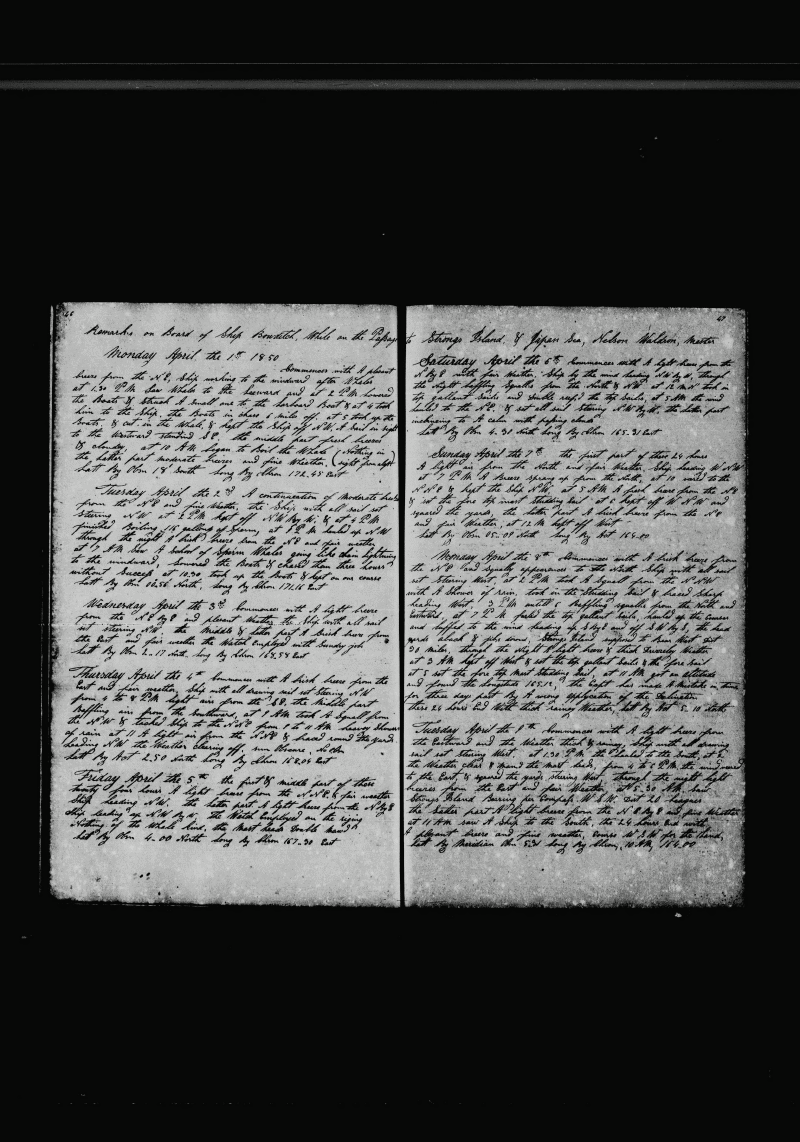 46
Remarks on Board of Ship Bowditch, While on the Passage
Monday April the 1st 1850
Commences with A pleasant
breeze from the N.E, Ship working to the windward after Whales
at 1.30 P.M. Saw Whale to the leeward and at 2 P.M. lowered
the Boats & Struck A Small one to the larboard Boat & at 4 took
him to the Ship, the Boats in chase 6 miles off. at 5 took up the
Boats, & cut in the Whale, & kept the Ship off N.W, A Sail in sight
to the Westward standing S.E, the middle part fresh breeze
& cloudy at 10 A.M. began to Boil the Whale (Nothing in
the latter part moderate breeze and fine Weather, (sight from aloft
Latt By Obn 18 South Long By Chron 172.45 East
Tuesday April the 2nd A continuation of moderate breeze
from the N.E and fine Weather, the Ship with all sail set
Steering N.W at 3 P.M. kept off N.W By W. & at 4 P.M
finished Boiling, 16 gallons of Sperm, at 8 P.M. hauled up N.W
through the night A brisk breeze from the N.E and fair weather
at 7 A.M. Saw A School of Sperm Whales going like chain lightning
to the windward, lowered the Boats & chased them three hours
without Success, at 10.30 took up the Boats & kept on our course
Latt By Obn 00.56 North, Long By Chron 171.16 East
Wednesday April the 3rd Commences with A light breeze
from the N.E By E and pleasant Weather, the Ship with all sail
set steering N.W, the Middle & latter part A brisk breeze from
the East and fair weather the Watch Employed with Sundry jobs
Latt By Obn 2.17 North, Long By Chron 168.58 East
Thursday April the 4th Commences with A brisk breeze from the
East and fair weather, Ship with all drawing sail set Steering N.W
from 4 to 8 P.M. light air from the S.E, the Middle part
Baffling airs from the Southward, at 7 A.M. took A Squall from
the N.W & tacked Ship to the N.N.E from 9 to 11 A.M. heavy Showers
of rain at 11 A light air from the N.E & braced round the yards
heading N.W the Weather clearing off, sun Obscure, No Obn
Latt By Act 2.50 North Long By Chron 168.04 East
Friday April the 5th the first & middle part of these
twenty four hours A light breeze from the N.N.E & fair weather
Ship heading N.W. the latter part A light breeze from the N.By E
Ship heading up N.W By W. the Watch Employed on the rigging
Nothing of the Whale kind, the Mast heads Double Mann'd
Latt By Obn 4.00 North Long By Chron 167.30 East
47
to Strongs Island, & Japan Sea, Nelson Waldron, Master
Saturday April the 6th Commences with A light breeze from the
N By E with fair Weather, Ship by the wind heading N.W by W, through
the night baffling Squalls from the North & N.W, at 12 M.N took in
top gallant Sails and double reef'd the top Sails, at 5 A.M the wind
hauled to the N.E. & set all sail Steering N.W By W, the latter part
inclining to A calm with passing clouds
Latt By Obn 4.30 North Long By Chron 165.31 East
Sunday April the 7th the first part of these 24 hours
A light air from the North and fair Weather, Ship heading W.N.W
at 7 P.M. A Breeze sprang up from the North, at 10 veered to the
N.N.E & kept the Ship N.W. at 5 A.M A fresh breeze from the N.E
& set the fore top mast Studding Sail at 6 kept off W.N.W. and
squared the yards, the latter part A brisk breeze from the N.E
and fair Weather, at 12 M. kept off West
Latt By Obn 05.09 North Long By Act 165.00
Monday April the 8th Commences with A brisk breeze from
the N.E and Squally appearances to the North Ship with all sail
set Steering West, at 2 P.M. took A Squall from the N.N.W
with A Shower of rain, took in the Studding Sail & braced Sharp
heading West, 3 P.M. until 6 Baffling squalls from the North and
Eastward, at 7 P.M furled the top gallant Sails, hauled up the courses
and luffed to the wind heading up S By E and off S.W By S, the head
yards aback & jibs down, Strongs Island supposed to bear West dist
30 miles, through the Night A light breeze & thick Squally Weather
at 3 A.M kept off West & set the top gallant Sails & the fore sail
at 5 set the fore top Mast Studding Sail, at 11 A.M got an altitude
and found the Longitude 165.12, the Capt has made A Mistake in time
for three days past By A wrong application of the Declination
these 24 hours End With thick rainy Weather, Latt By Act 5.10 North
Tuesday April the 9th Commences with A light breeze from
the Eastward and the Weather thick & rainy, Ship with all drawing
sail set Steering West, at 1.30 P.M. the hauled to the South, at 2
the Weather clear & mann'd the Mast heads, from 4 to 6 P.M. the wind veered
to the East & squared the yards steering West, through the night light
breezes from the East and fair Weather, at 5.30 A.M. Saw
Strongs Island Bearing per Compass W.S.W. Dist 28 leagues
the latter part A light breeze from the N.E. By E and fine Weather
at 11 A.M saw A Ship to the South, the 24 hours End with
A pleasant breeze and fine weather, Course W.S.W for the land,
Latt By Meridian Obn 5.31 Long By Chron, 10 A.M, 164.00